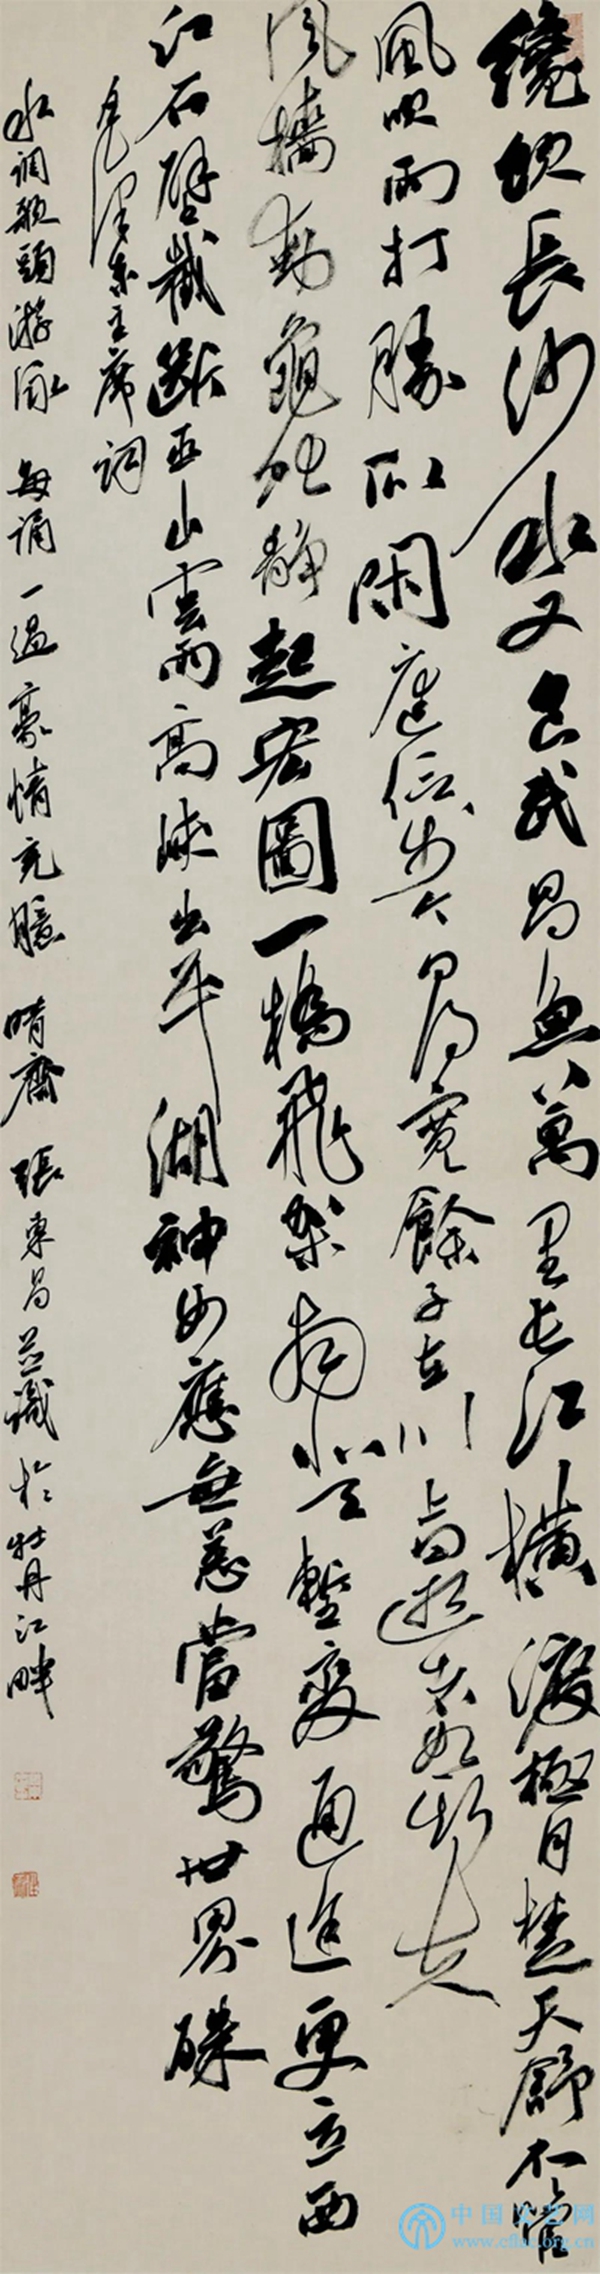 纔飲長沙水又食武昌魚萬里長江橫渡極目楚天舒不管
風吹雨打勝似閑庭信步今日得寬餘子在川上曰逝者如斯夫
風檣動龜蛇靜起宏圖一橋飛架南北天塹變通途更立西
江石壁截斷巫山雲雨高峽出平湖神女應無恙當驚世界殊
毛澤東主席詞
水調歌頭游泳 每誦一過豪情充臆 晴齋 張東昌並識於牡丹江畔
中国文艺网
www.cflac.org.cn